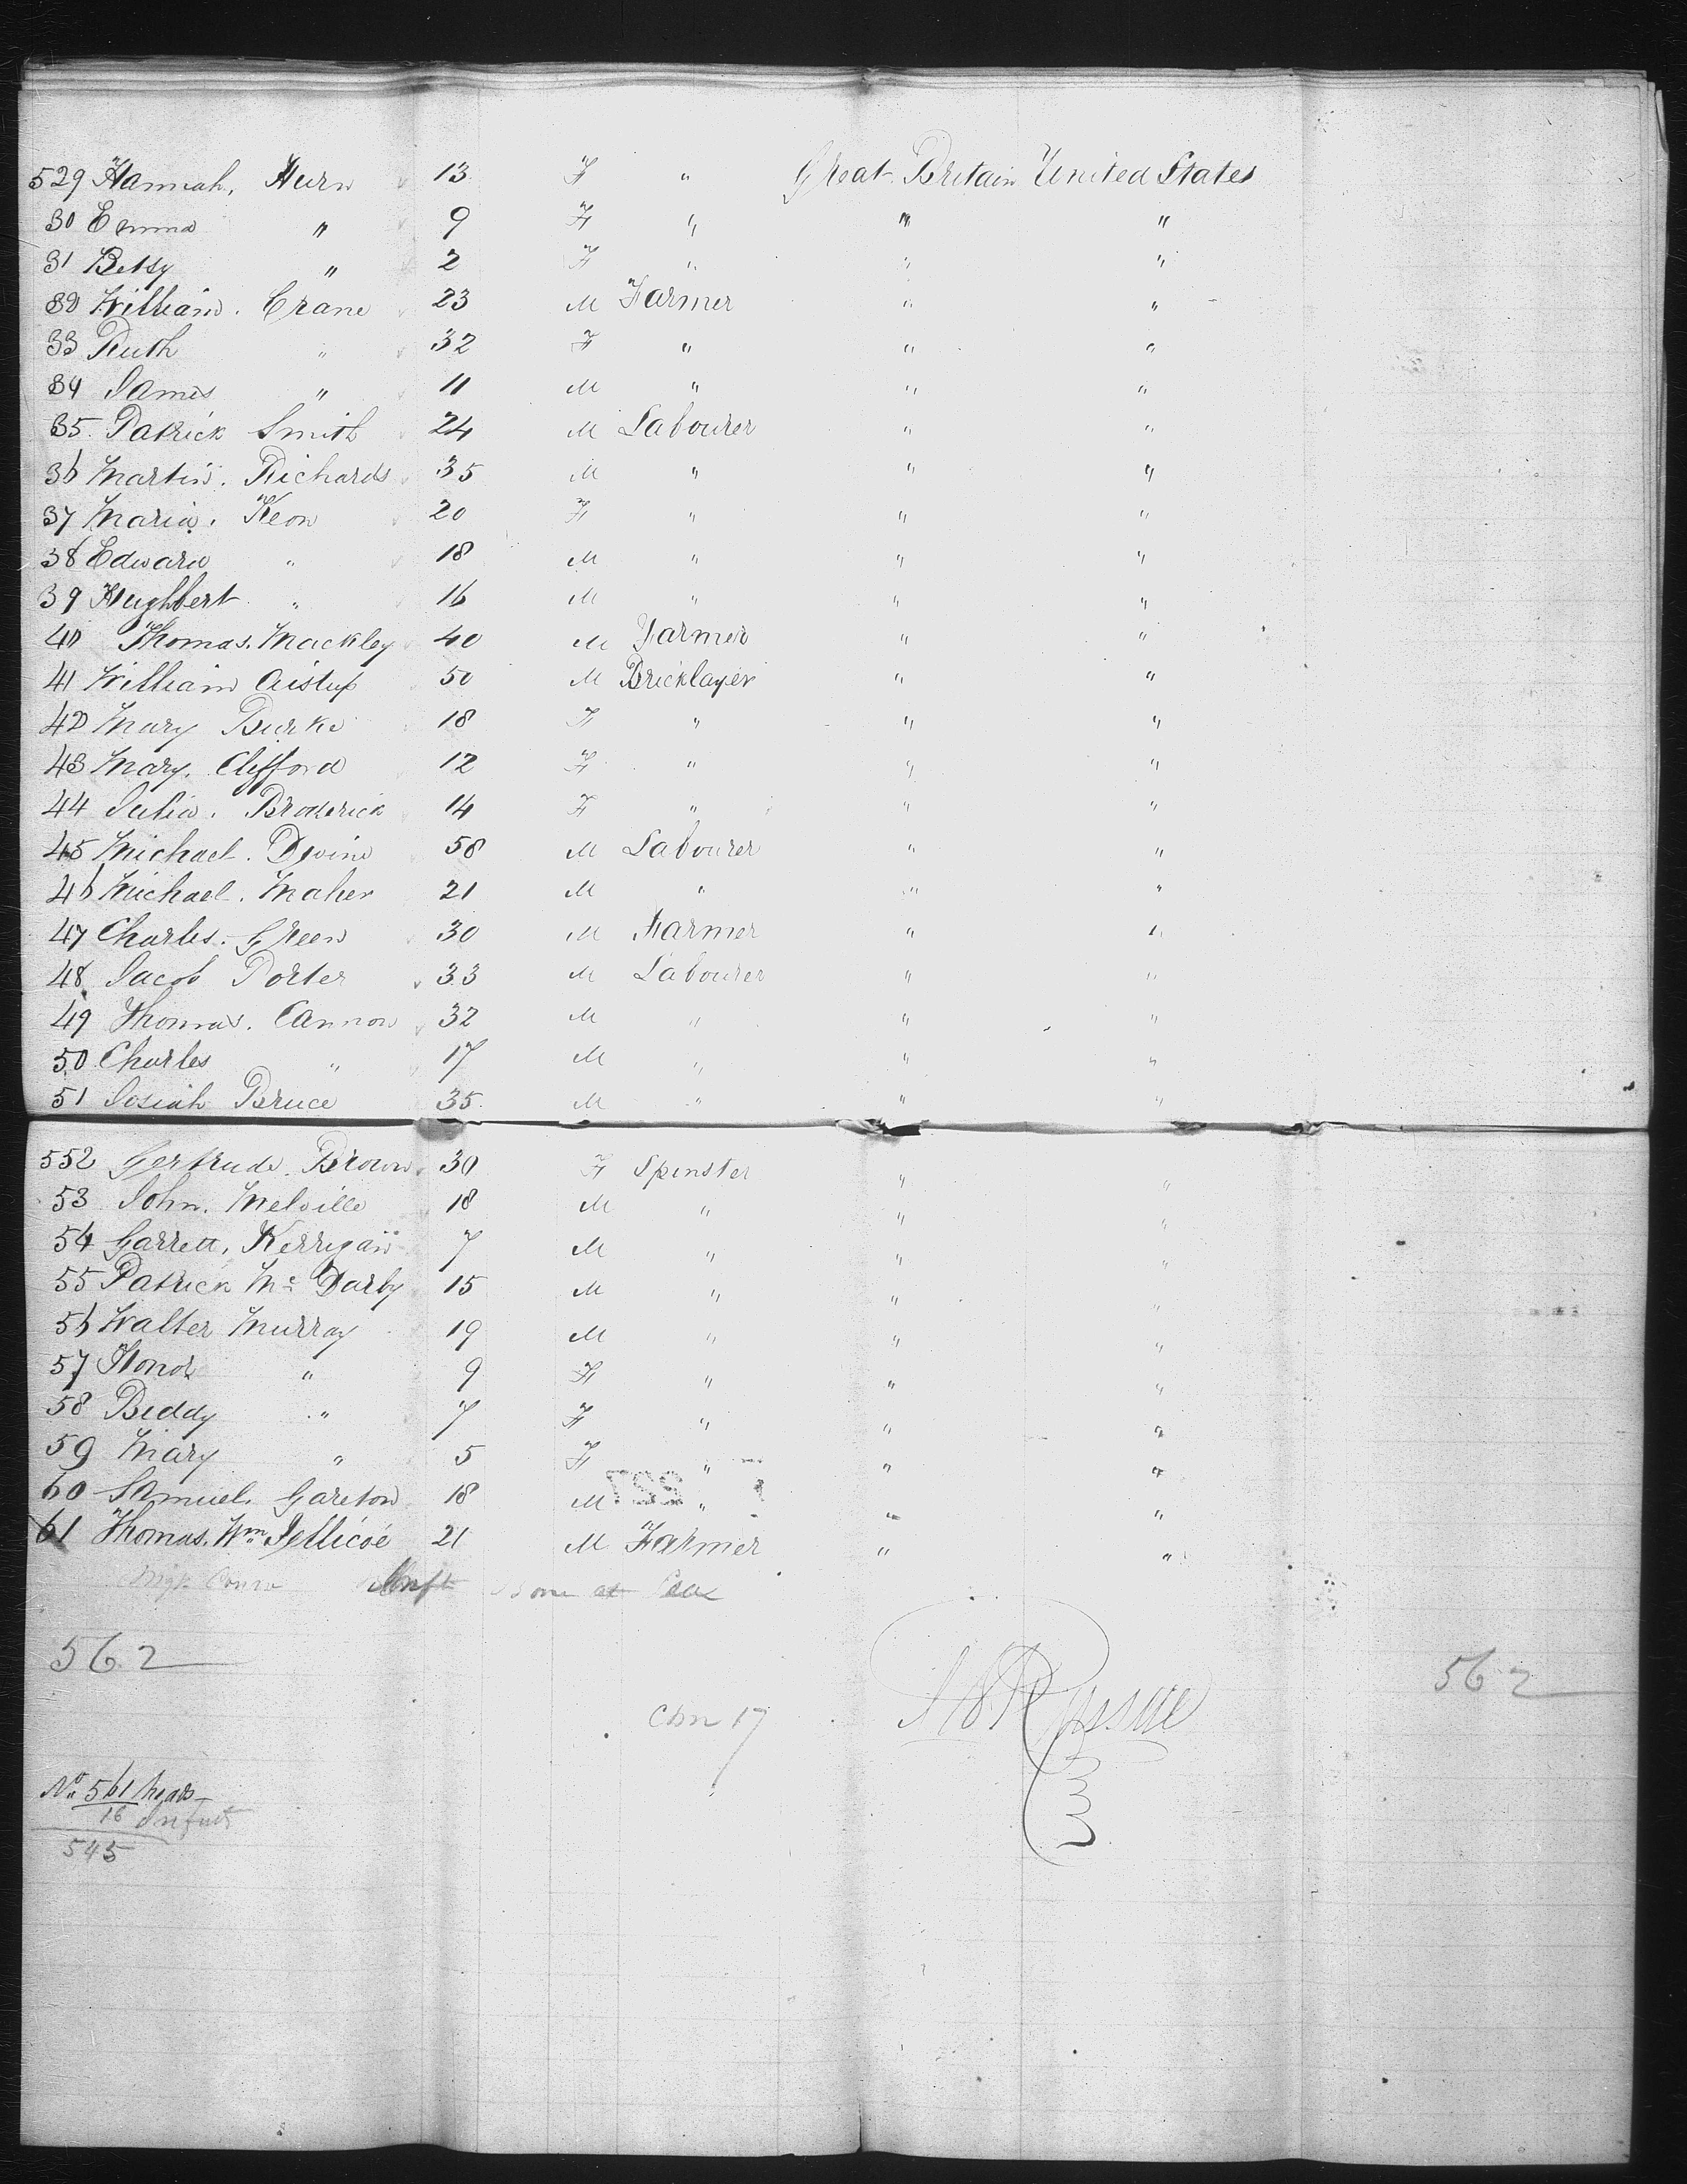 529 Hannah. Hurn 13 F " Great Britain United States
30 Emma " 9 F " " "
31 Betsy " 2 F " " "
32 William. Crane 23 M Farmer " "
33 Ruth " 32 F " " "
34 James " 11 M " " "
35. Patrick Smith 24 M Labourer " "
36 Martin. Richards 35 M " " "
37 Maria. Keon 20 F " " "
38 Edward " 18 M " " "
39 Hughbert " 16 M " " "
40 Thomas. Mackley 40 M Farmer " "
41 William 50 M Bricklayer " "
42 Mary Burke 18 F " " "
43 Mary. Clifford 12 F " " "
44 Julia. Broderick 14 F " " "
45 Michael. Devine 58 M Labourer " "
46 Michael. Maher 21 M " " "
47 Charles. Green 30 M Farmer " "
48 Jacob Porter 33 M Labourer " "
49 Thomas. Cannon 32 M " " "
50 Charles " 17 M " " "
51 Josiah Bruce 35 M " " "
552 Gertrude. Brown 30 F Spinster " "
53 John. Melville 18 M " " "
54 Garrett. Kerrigan 7 M " " "
55 Patrick Mc Darby 15 M " " "
56 Walter Murray 19 M " " "
57 Honor " 9 F " " "
58 Biddy " 7 F " " "
59 Mary " 5 F " " "
60 Samuel. Gareton 18 M " " "
61 Thomas. Wm Jellicoe 21 M Farmer " "
Born at Sea
562
562
17
No 561 heads
16 Infants
545